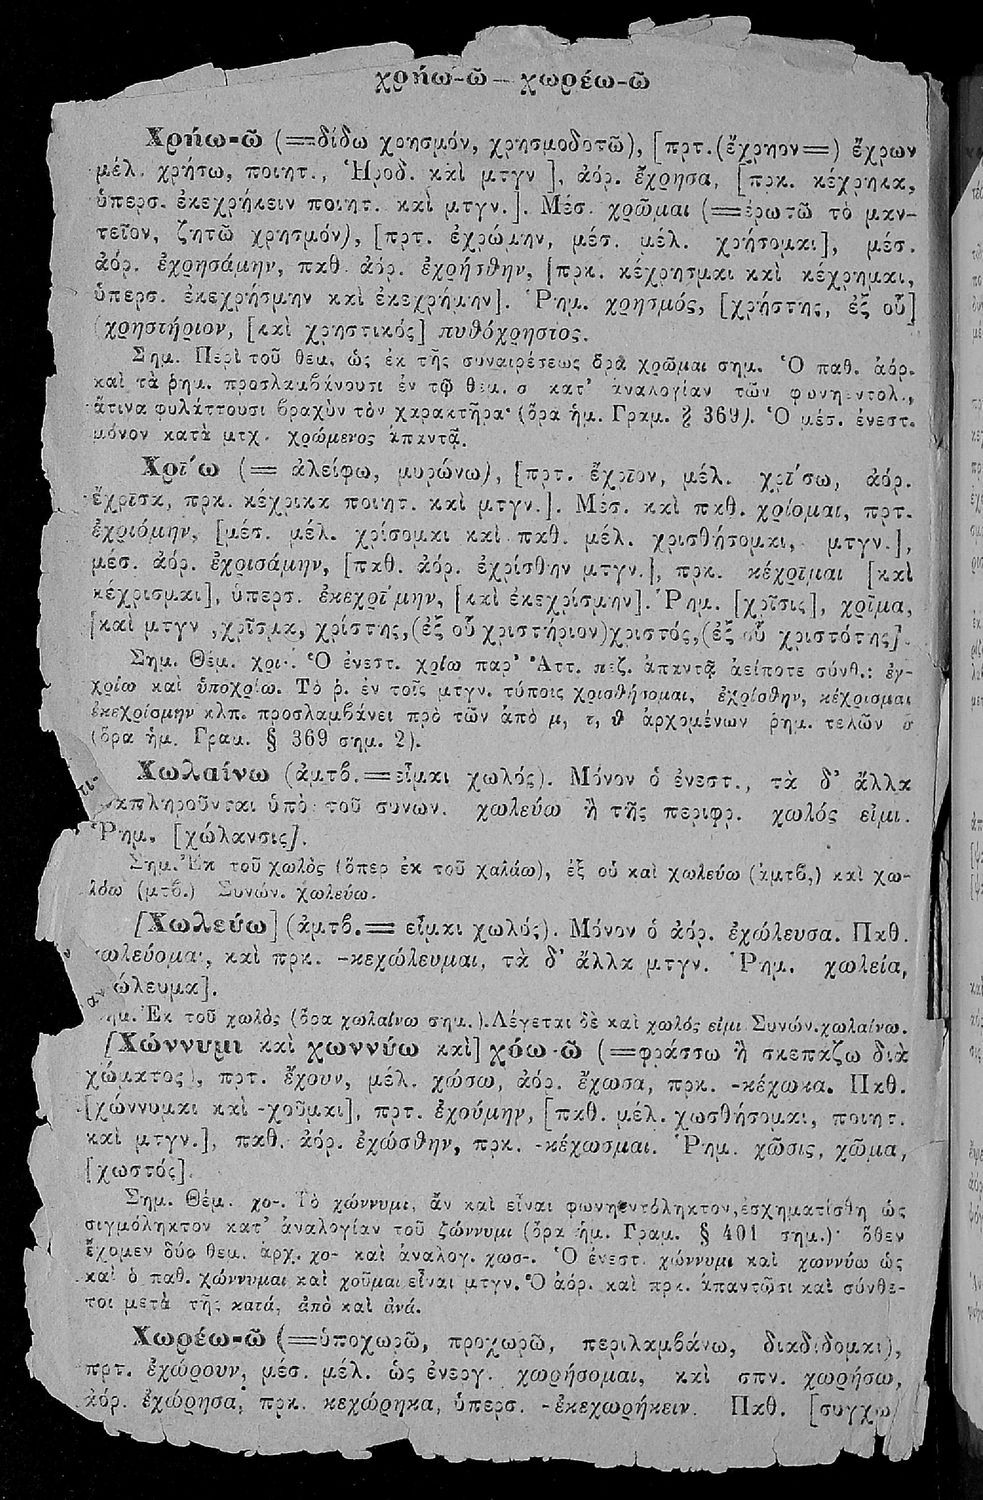 χρήω-ῶ — χωρέω-ῶ
Χρήω-ῶ (=δίδω χρησμόν, χρησμοδοτῶ), [πρτ.(ἔχρηον=) ἔχρων
μέλ. χρήσω, ποιητ., Ἡροδ. καὶ μτγν], ἀόρ. ἔχρησα, [πρκ. κέχρηκα,
ὑπερσ. ἐκεχρήκειν ποιητ. καὶ μτγν.]. Μέσ. χρῶμαι (=ἐρωτῶ τὸ μαν-
τεῖον, ζητῶ χρησμόν), [πρτ. ἐχρώμην, μέσ. μέλ. χρήσομαι], μέσ.
ἀόρ. ἐχρησάμην, παθ. ἀόρ. ἐχρήσθην, [πρκ. κέχρησμαι καὶ κέχρημαι,
ὑπερσ. ἐκεχρήσμην καὶ ἐκεχρήμην]. Ῥημ. χρησμός, [χρήστης, ἐξ οὗ]
χρηστήριον, [καὶ χρηστικός] πυθόχρηστος.
Σημ. Περὶ τοῦ θεμ. ὡς ἐκ τῆς συναιρέσεως ὅρα χρῶμαι σημ. Ὁ παθ. ἀόρ.
καὶ τὰ ῥημ. προσλαμβάνουσι ἐν τῷ θεμ. σ κατ' ἀναλογίαν τῶν φωνηεντολ.,
ἅτινα φυλάττουσι βραχὺν τὸν χαρακτῆρα· (ὅρα ἡμ. Γραμ. § 369). Ὁ μέσ. ἐνεστ.
μόνον κατὰ μτχ. χρώμενος ἀπαντᾷ.
Χρί̄ω (= ἀλείφω, μυρώνω), [πρτ. ἔχρῑον, μέλ. χρί̄σω, ἀόρ.
ἔχρῑσα, πρκ. κέχρικα ποιητ. καὶ μτγν.]. Μέσ. καὶ παθ. χρίομαι, πρτ.
ἐχριόμην, [μέσ. μέλ. χρίσομαι καὶ παθ. μέλ. χρισθήσομαι, μτγν.],
μέσ. ἀόρ. ἐχρισάμην, [παθ. ἀόρ. ἐχρίσθην μτγν.], πρκ. κέχρῑμαι [καὶ
κέχρισμαι], ὑπερσ. ἐκεχρί̄μην, [καὶ ἐκεχρίσμην]. Ῥημ. [χρῖσις], χρῖμα,
[καὶ μτγν ,χρῖσμα, χρίστης,(ἐξ οὗ χριστήριον)χριστός,(ἐξ οὗ χριστότης].
Σημ. Θέμ. χρι-. Ὁ ἐνεστ. χρίω παρ' Ἀττ. πεζ. ἀπαντᾷ ἀείποτε σύνθ.: ἐγ-
χρίω καὶ ὑποχρίω. Τὸ ῥ. ἐν τοῖς μτγν. τύποις χρισθήσομαι, ἐχρίσθην, κέχρισμαι
ἐκεχρίσμην κλπ. προσλαμβάνει πρὸ τῶν ἀπὸ μ, τ, θ ἀρχομένων ῥημ. τελῶν σ
(ὅρα ἡμ. Γραμ. § 369 σημ. 2).
Χωλαίνω (ἀμτβ.=εἶμαι χωλός). Μόνον ὁ ἐνεστ., τὰ δ' ἄλλα
ἀναπληροῦνται ὑπὸ τοῦ συνων. χωλεύω ἢ τῆς περιφρ. χωλός εἰμι.
Ῥημ. [χώλανσις].
Σημ. Ἐκ τοῦ χωλὸς (ὅπερ ἐκ τοῦ χαλάω), ἐξ οὗ καὶ χωλεύω (ἀμτβ,) καὶ χω-
λόω (μτβ.) Συνών. χωλεύω.
[Χωλεύω] (ἀμτβ.= εἶμαι χωλός). Μόνον ὁ ἀόρ. ἐχώλευσα. Παθ.
χωλεύομαι, καὶ πρκ. -κεχώλευμαι, τὰ δ' ἄλλα μτγν. Ῥημ. χωλεία,
ώλευμα].
ημ. Ἐκ τοῦ χωλὸς (ὅρα χωλαίνω σημ.). Λέγεται δὲ καὶ χωλός εἰμι Συνών. χωλαίνω.
[Χώννυμι καὶ χωννύω καὶ] χόω-ῶ (=φράσσω ἢ σκεπάζω διὰ
χώματος), πρτ. ἔχουν, μέλ. χώσω, ἀόρ. ἔχωσα, πρκ. -κέχωκα. Παθ.
[χώννυμαι καὶ -χοῦμαι], πρτ. ἐχούμην, [παθ. μέλ. χωσθήσομαι, ποιητ.
καὶ μτγν.], παθ. ἀόρ. ἐχώσθην, πρκ. -κέχωσμαι. Ῥημ. χῶσις, χῶμα,
[χωστός].
Σημ. Θέμ. χο-. Τὸ χώννυμι, ἂν καὶ εἶναι φωνηεντόληκτον, ἐσχηματίσθη ὡς
σιγμόληκτον κατ' ἀναλογίαν τοῦ ζώννυμι (ὅρα ἡμ. Γραμ. § 401 σημ.)· ὅθεν
ἔχομεν δύο θεμ. ἀρχ. χο- καὶ ἀναλογ. χωσ-. Ὁ ἐνεστ. χώννυμι καὶ χωννύω ὡς
καὶ ὁ παθ. χώννυμαι καὶ χοῦμαι εἶναι μτγν. Ὁ ἀόρ. καὶ πρκ. ἀπαντῶσι καὶ σύνθε-
τοι μετὰ τῆς κατά, ἀπὸ καὶ ἀνά.
Χωρέω-ῶ (=ὑποχωρῶ, προχωρῶ, περιλαμβάνω, διαδίδομαι),
πρτ. ἐχώρουν, μέσ. μέλ. ὡς ἐνεργ. χωρήσομαι, καὶ σπν. χωρήσω,
ἀόρ. ἐχώρησα, πρκ. κεχώρηκα, ὑπερσ. -ἐκεχωρήκειν. Παθ. [συγχω